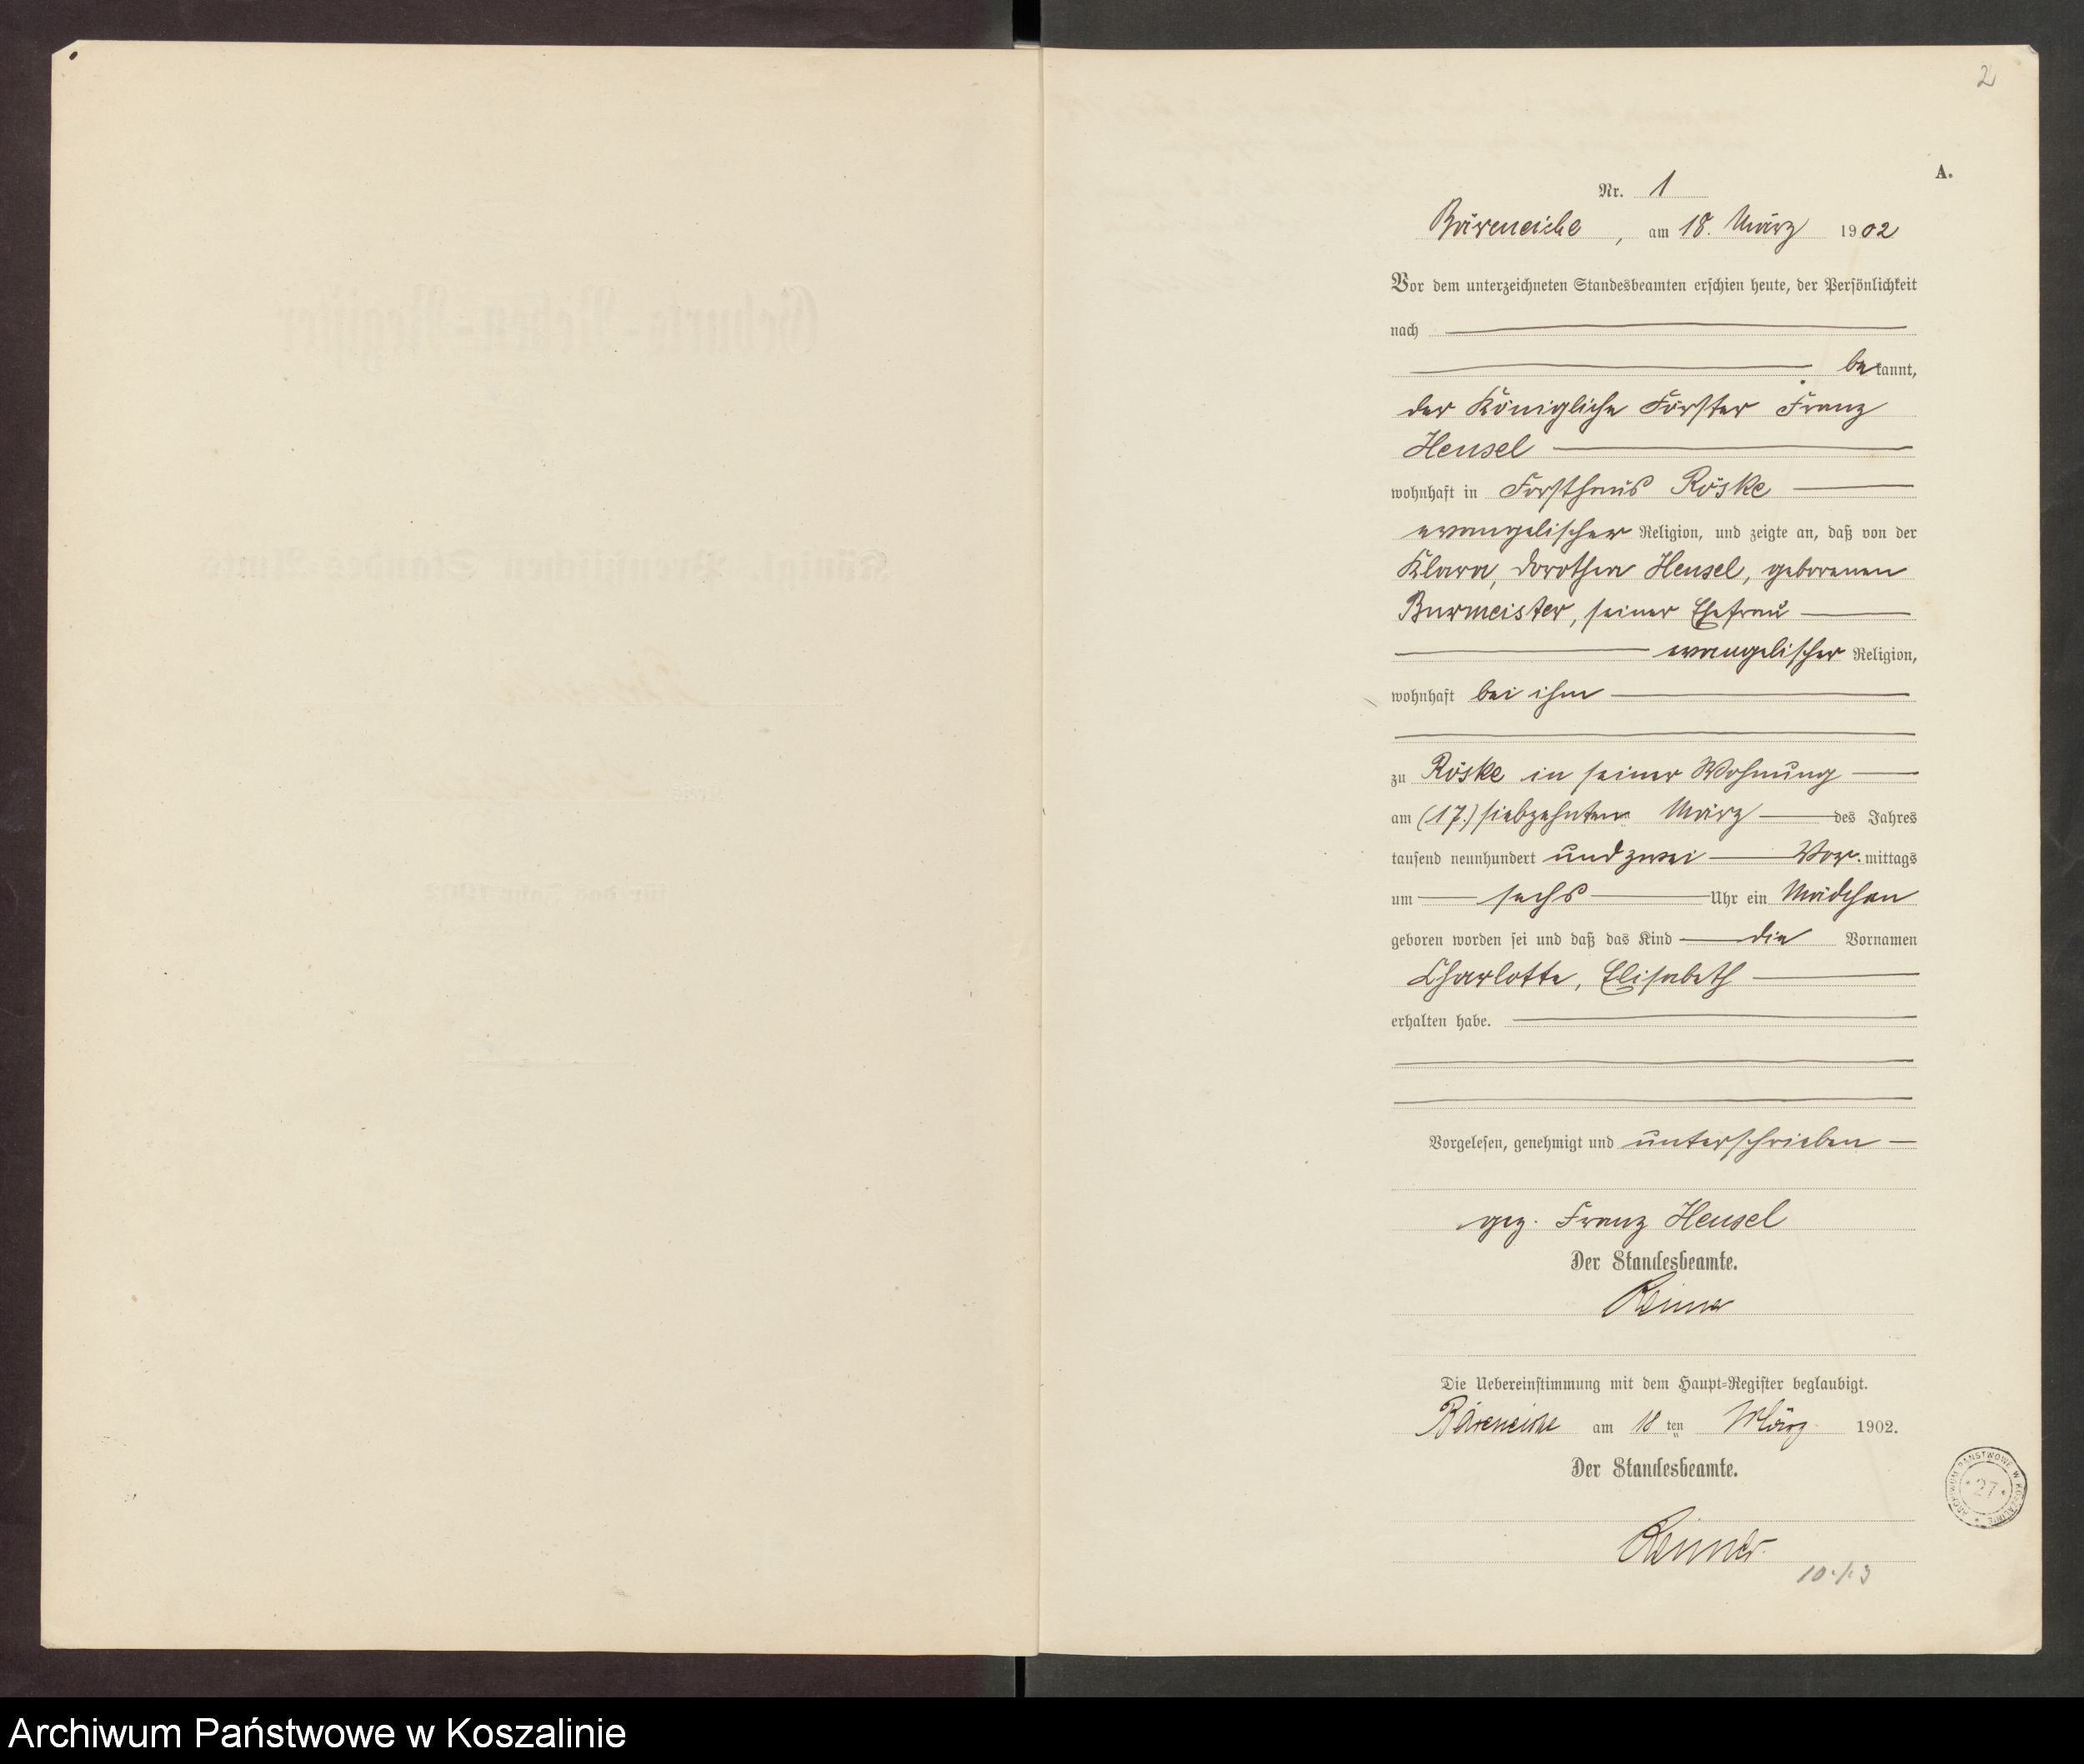 2
A.
Nr. 1
Bäreneiche, am 18. März 1902
Vor dem unterzeichneten Standesbeamten erschien heute, der Persönlichkeit
nach
bekannt,
der Königliche Förster Franz
Hensel
wohnhaft in Forsthaus Röske
evangelischer Religion, und zeigte an, daß von der
Klara, Dorothea Hensel, geborenen
Burmeister, seiner Ehefrau
evangelischer Religion,
wohnhaft bei ihm
zu Röske in seiner Wohnung
am (17.) siebzehnten März des Jahres
tausend neunhundert und zwei Vor.mittags
um sechs Uhr ein Mädchen
geboren worden sei und daß das Kind die Vornamen
Charlotte, Elisabeth
erhalten habe.
Vorgelesen, genehmigt und unterschrieben
gez. Franz Hensel
Der Standesbeamte.
Die Uebereinstimmung mit dem Haupt-Register beglaubigt.
Bäreneiche am 18ten März 1902.
Der Standesbeamte.
ARCHIWUM PAŃSTWOWE W KOSZALINIE
27
Archiwum Państwowe w Koszalinie